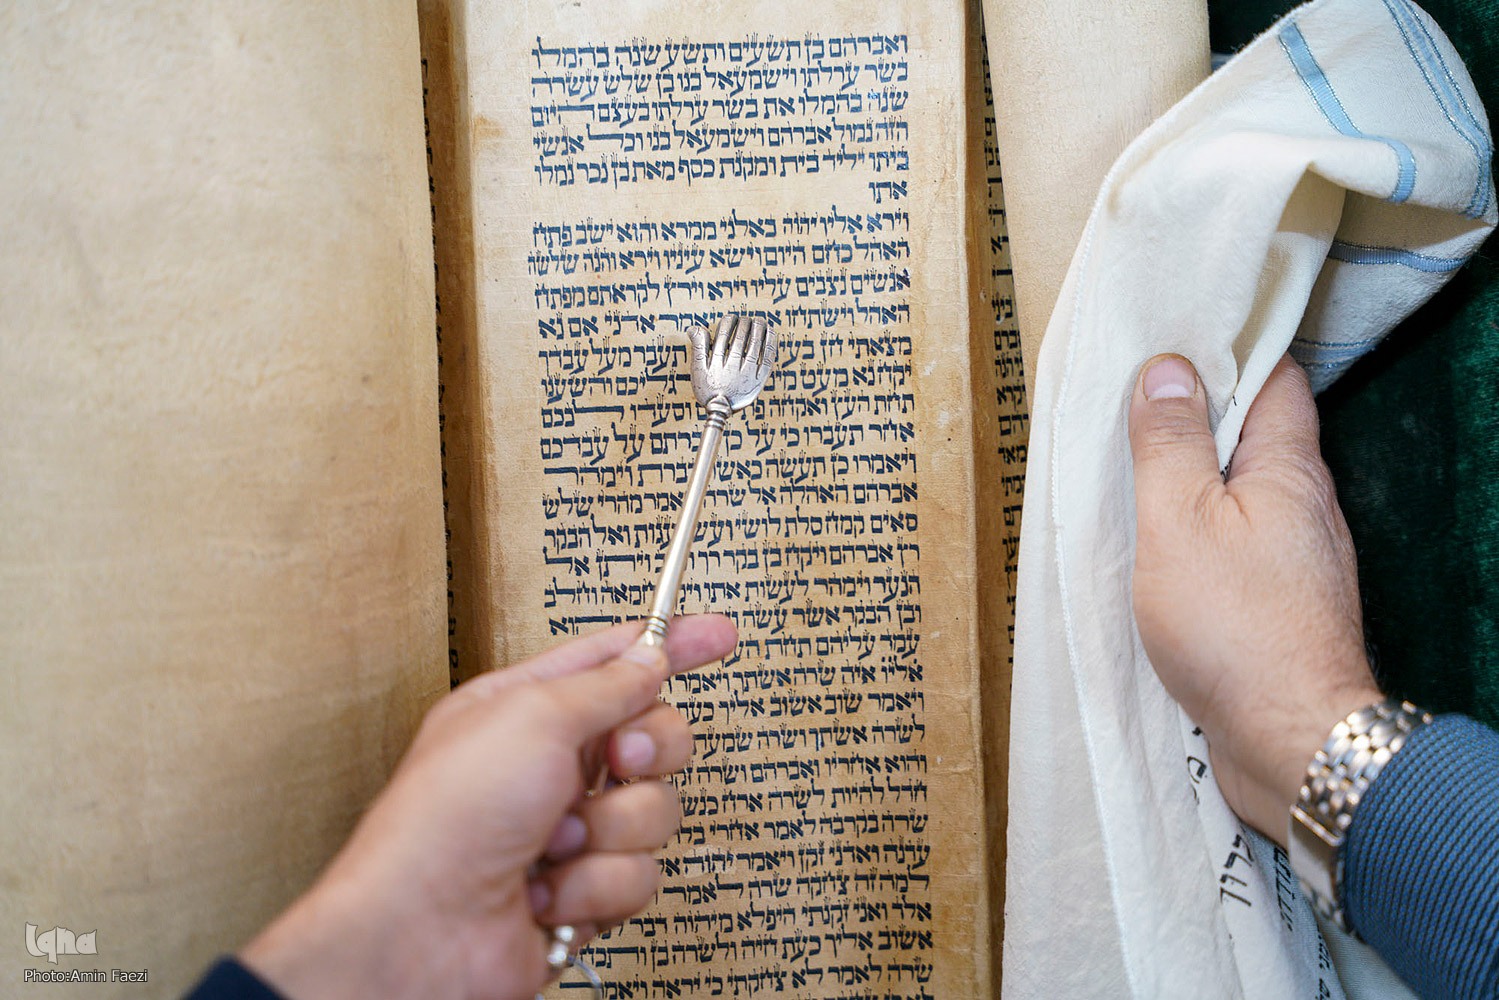 ואברהם בן תשעים ותשע שנה בהמלו
בשר ערלתו וישמעאל בנו בן שלש עשרה
שנה בהמלו את בשר ערלתו בעצם היום
הזה נמול אברהם וישמעאל בנו וכל אנשי
ביתו יליד בית ומקנת כסף מאת בן נכר נמלו
אתו
וירא אליו יהוה באלני ממרא והוא ישב פתח
האהל כחם היום וישא עיניו וירא והנה שלשה
אנשים נצבים עליו וירא וירץ לקראתם מפתח
האהל וישתחו ויאמר אדני אם נא
מצאתי חן בעי תעבר מעל עבדך
יקח נא מעט מים רגליכם והשענו
תחת העץ ואקחה פת וסעדו לבכם
אחר תעברו כי על כן עברתם על עבדכם
ויאמרו כן תעשה כאשר דברת וימהר
אברהם האהלה אל שרה ויאמר מהרי שלש
סאים קמח סלת לושי ועשי עגות ואל הבקר
רץ אברהם ויקח בן בקר רך ויתן אל
הנער וימהר לעשות אתו ויקח חמאה וחלב
ובן הבקר אשר עשה והוא
עמד עליהם תחת העץ
אליו איה שרה אשתך ויאמר
ויאמר שוב אשוב אליך כעת
לשרה אשתך ושרה שמעת
והוא אחריו ואברהם ושרה זקנים
חדל להיות לשרה ארח כנשים
שרה בקרבה לאמר אחרי בלתי
עדנה ואדני זקן ויאמר יהוה אל
למה זה צחקה שרה לאמר
אלד ואני זקנתי היפלא מיהוה דבר למועד
אשוב אליך כעת חיה ולשרה בן ותכחש
שרה לאמר לא צחקתי כי יראה ויאמר
iqna
Photo:Amin Faezi